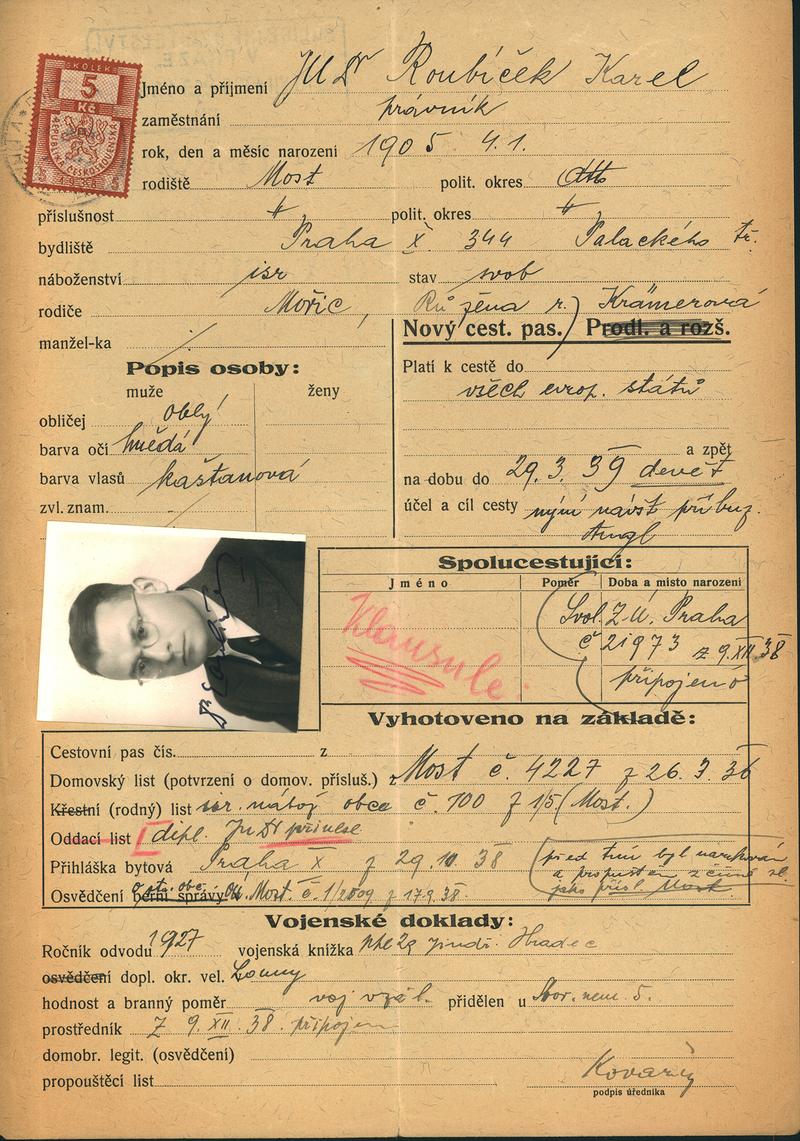 KOLEK
5
Kč
REPUBLIKA ČESKOSLOVENSKÁ
Jméno a příjmení JUDr Roubíček Karel
zaměstnání právník
rok, den a měsíc narození 1905 4.1.
rodiště Most polit. okres dtto
příslušnost polit. okres
bydliště Praha X 344 Palackého tř.
náboženství isr stav svob
rodiče Mořic, Růžena r. Krämerová
manžel-ka
Nový cest. pas. Prodl. a rozš.
Popis osoby:
muže ženy
obličej oblý
barva očí hnědá
barva vlasů kaštanová
zvl. znam.
Platí k cestě do
všech evrop. států
a zpět
na dobu do 29. 3. 39 devět
účel a cíl cesty nyní návšt příbuz.
Angl
Spolucestující:
Jméno Poměr Doba a místo narození
Klausule
Svol. Z.Ú. Praha
č 21973 z 9.XII 38
připojeno
Vyhotoveno na základě:
Cestovní pas čís. z
Domovský list (potvrzení o domov. přísluš.) Most č. 4227 z 26. 3. 36
Křestní (rodný) list isr. nábož obce č. 100 f 15 (Most.)
Oddací list dipl. JuDr přinese
Přihláška bytová Praha X z 29. 10. 38
před tím byl narukován
a propuštěn z činné sl.
jako přísl. Most
Osvědčení berní správy Most. č. 1/2509 z 17.9 38.
Vojenské doklady:
Ročník odvodu 1927 vojenská knížka Jindř. Hradec
osvědčení dopl. okr. vel. Louny
hodnost a branný poměr voj v zál. přidělen u Sbor. nem 5.
prostředník Z 9. XII. 38. připojen
domobr. legit. (osvědčení)
propouštěcí list
Kovařík
podpis úředníka